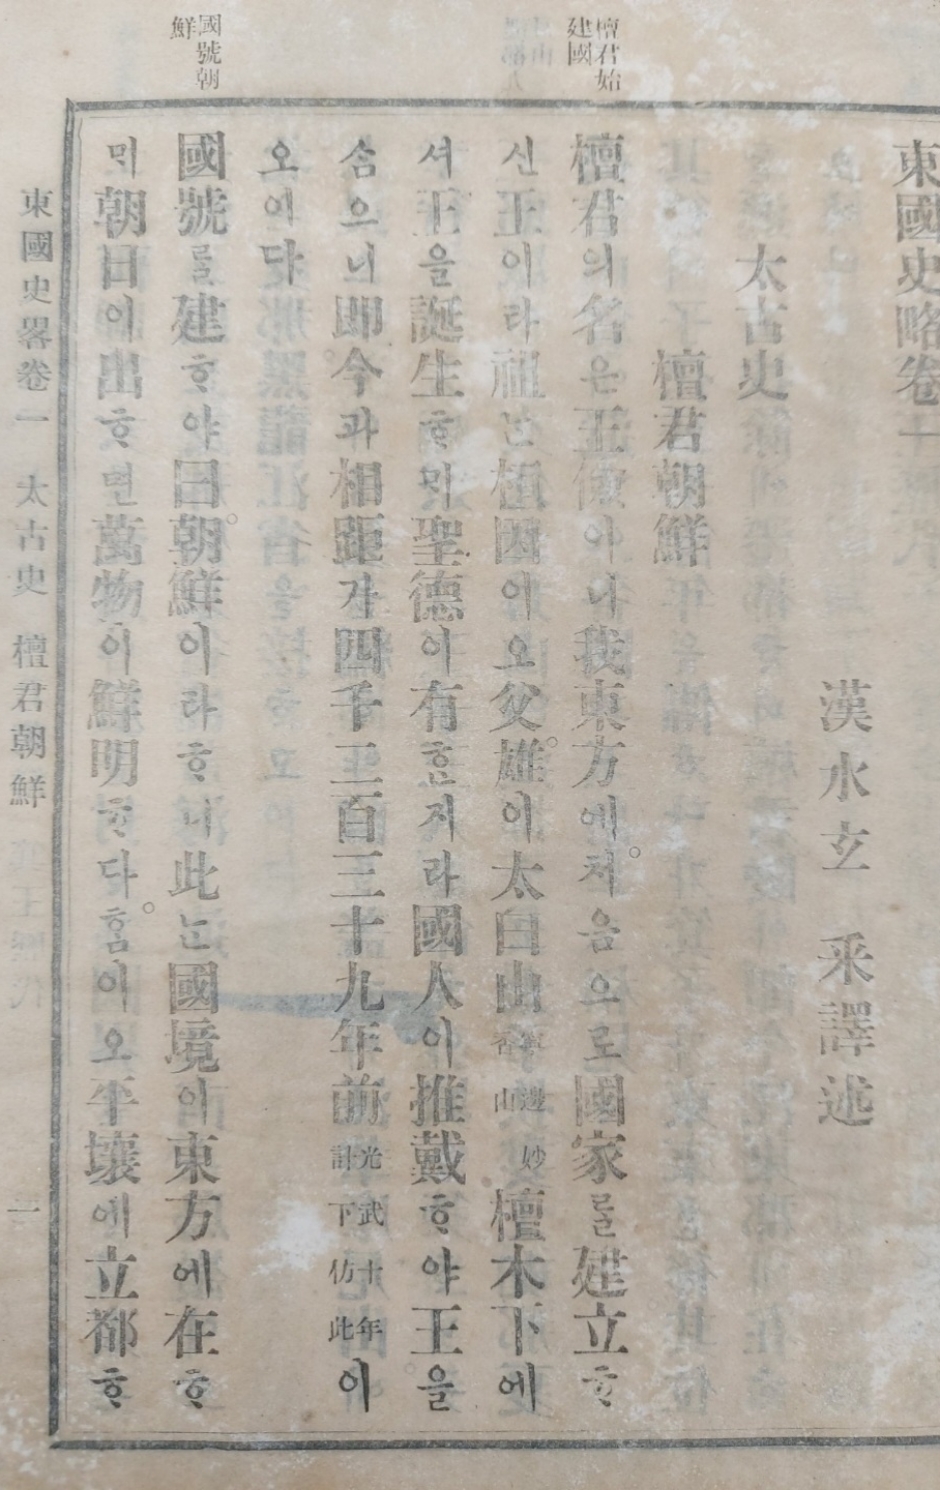 東國史略卷一
漢水玄 采譯述
太古史
檀君朝鮮
檀君始
建國
檀君의名은王儉이니我東方에처음으로國家를建立ᄒᆞ
신王이라祖ᄂᆞᆫ桓因이오父雄이太白山寧邊妙香山檀木下에
셔王을誕生ᄒᆞᄆᆡ聖德이有ᄒᆞᆫ지라國人이推戴ᄒᆞ야王을
숨으니即今과相距가四千二百三十九年前光武十年計下仿此이
오이다
國號朝
鮮
國號를建ᄒᆞ야曰朝鮮이라ᄒᆞ니此ᄂᆞᆫ國境이東方에在ᄒᆞ
ᄆᆡ朝日이出ᄒᆞ면萬物이鮮明ᄒᆞ다ᄒᆞᆷ이오平壤에立都ᄒᆞ
東國史畧卷一 太古史 檀君朝鮮 一